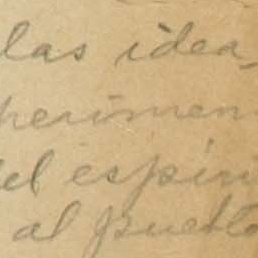 las idea
perimen
del espíri
al pueblo